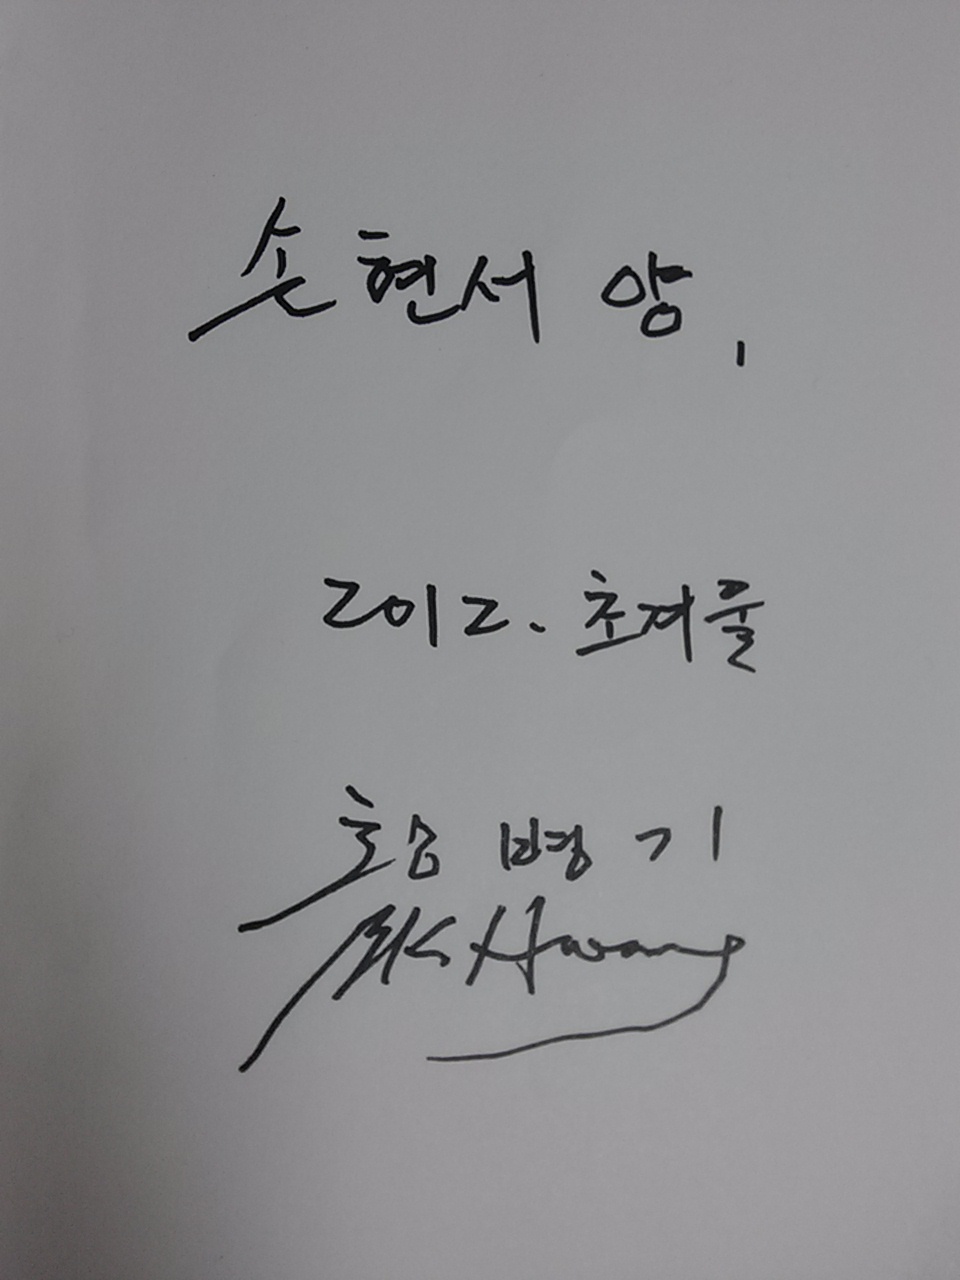 손현서 양,
2012. 초겨울
황병기
BK Hwang